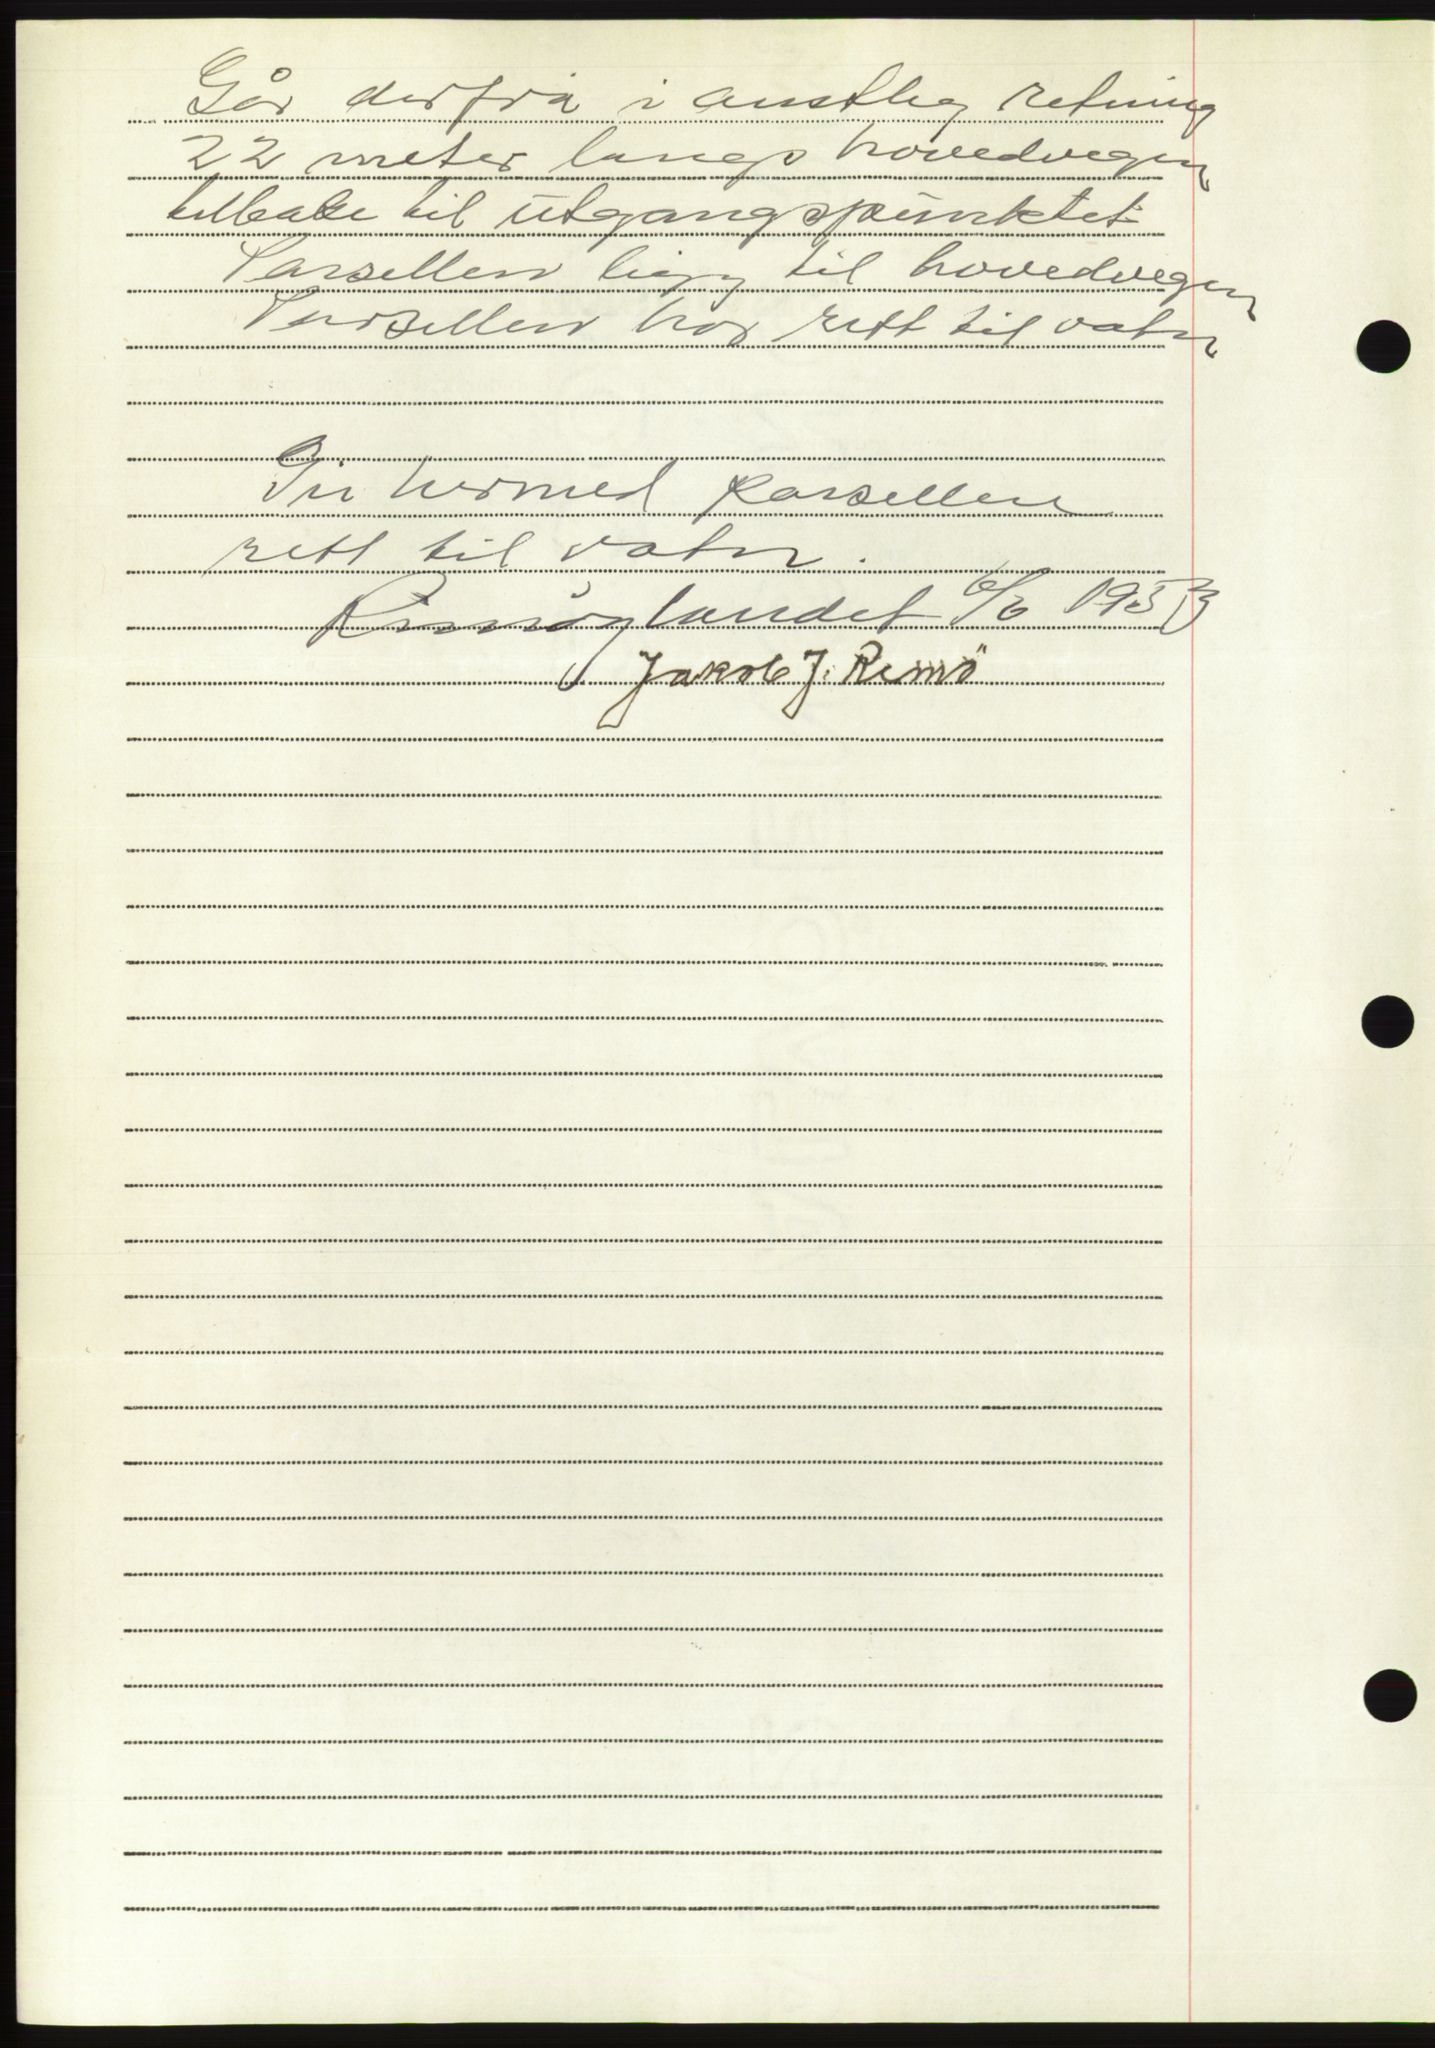 Går derfra i austleg retning
22 meter langs hovedvegen
tilbake til utgangspunktet
Parsellen ligg til hovedvegen
Parsellen har rett til vatn
Gir hermed parsellen
rett til vatn.
Remøylandet 6/6 1953
Jakob J. Remö